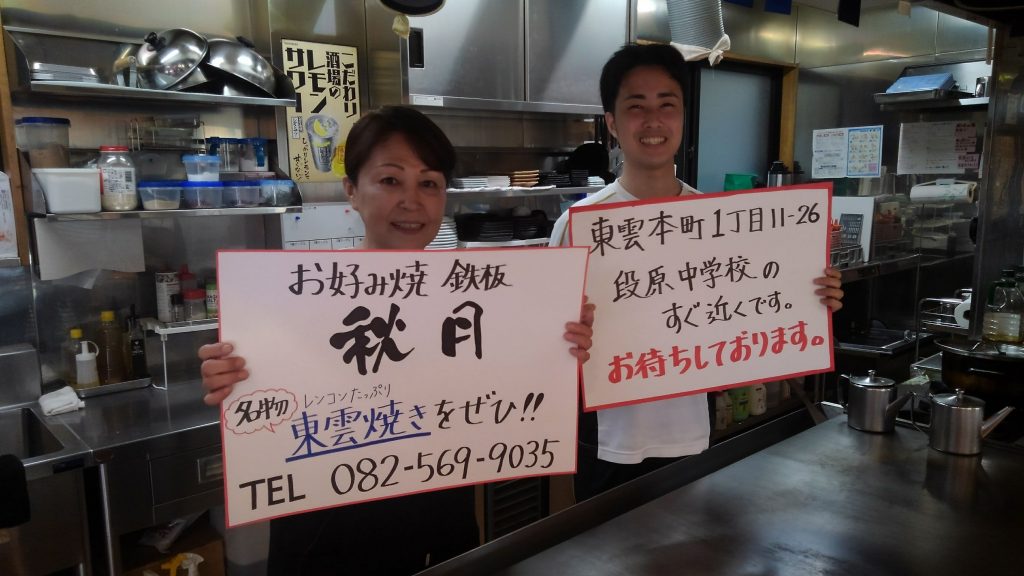 こだわり
酒場の
レモン
サワー
お好み焼 鉄板
秋月
名物
レンコンたっぷり
東雲焼きをぜひ!!
TEL 082-569-9035
東雲本町1丁目11-26
段原中学校の
すぐ近くです。
お待ちしております。